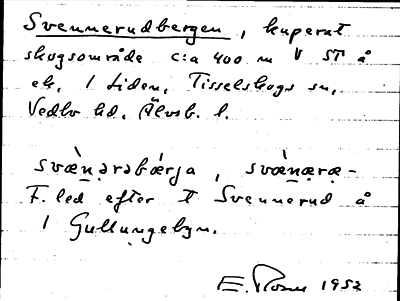 Svennerudbergen, kuperat
skogsområde c:a 400 m V ST å
ek. 1 Liden, Tisselskogs sn,
Vedbo hd, Älvsb. l.
svæ̀n̠ərəbǽrja, svæ̀n̠æræ-
F. led efter t Svennerud å
1 Gullungebyn.
E. 1952